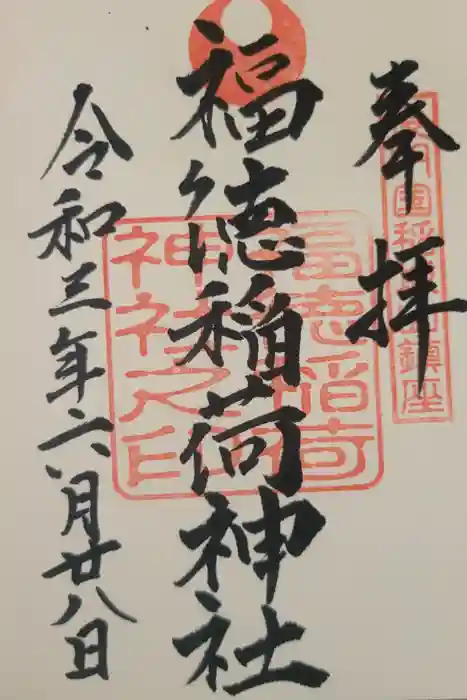 奉拝
福徳稲荷神社
福徳稲荷
神社之印
令和三年六月廿八日